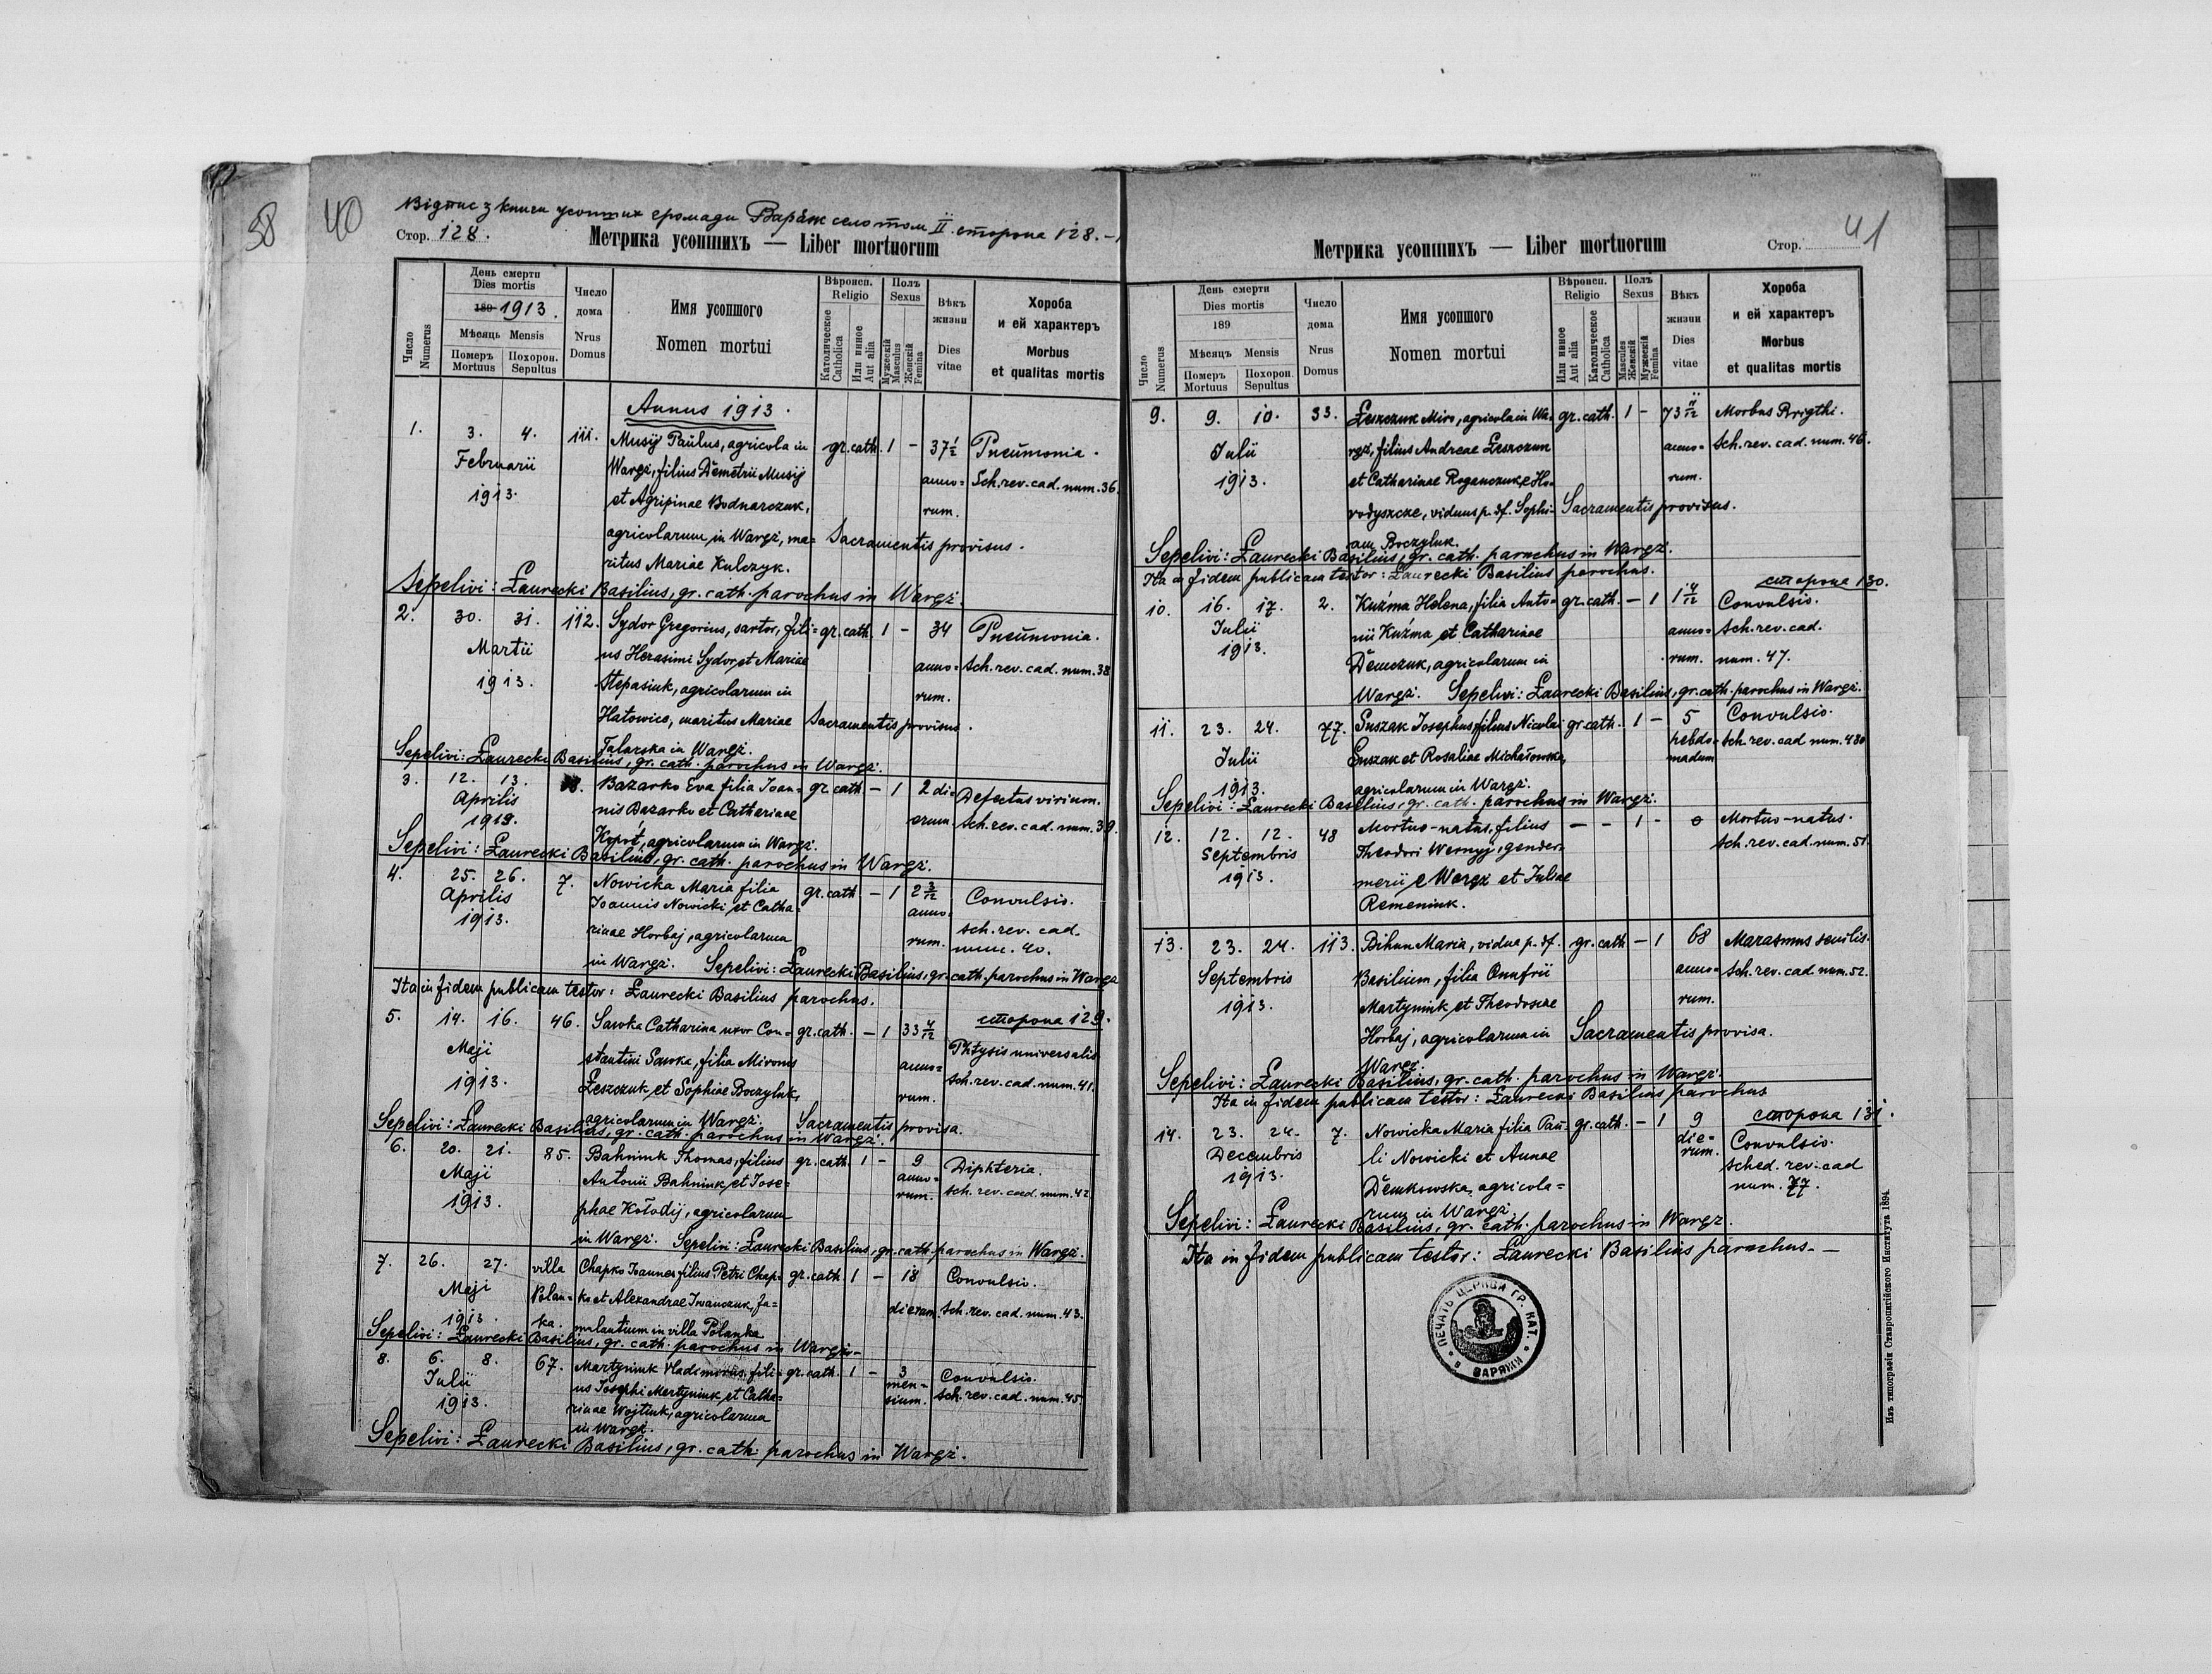 58
40
Відпис з книги усопших громади Варяж село том II. сторона 128.-
Стор. 128.
Метрика усопшихъ — Liber mortuorum
Число Numerus
День смерти
Dies mortis
189 1913.
Мѣсяць Mensis
Померъ Mortuus
Похорон. Sepultus
Число дома
Nrus Domus
Имя усопшого
Nomen mortui
Вѣроисп.
Religio
Католическое Catholica
Или инное Aut alia
Полъ
Sexus
Мужескій Masculus
Женскій Femina
Вѣкъ жизни
Dies vitae
Хороба
и ей характеръ
Morbus
et qualitas mortis
Annus 1913.
1. 3. 4. 111. Musij Paulus, agricola in gr. cath. 1 - 37 1/2 Pneumonia.
Februarii Waręż, filius Demetrii Musij anno= Sch. rev. cad. num. 36.
1913. et Agripinae Bodnarczuk, rum.
agricolarum in Waręż, ma= Sacramentis provisus.
ritus Mariae Kulczyk.
Sepelivi: Ławrecki Basilius, gr. cath. parochus in Waręż.
2. 30. 31. 112. Sydor Gregorius, sartor, fili= gr. cath. 1 - 34 Pneumonia.
Martii us Herasimi Sydor et Mariae anno= Sch. rev. cad. num. 38
1913. Stepasiuk, agricolarum in rum.
Hatowice, maritus Mariae Sacramentis provisus.
Talarska in Waręż.
Sepelivi: Ławrecki Basilius, gr. cath. parochus in Waręż.
3. 12. 13. Bazarko Eva filia Joan= gr. cath. - 1 2 di= Defectus virium.
Aprilis nis Bazarko et Catherinae erum. Sch. rev. cad. num. 39.
1913. Kopoť, agricolarum in Waręż.
Sepelivi: Ławrecki Basilius, gr. cath. parochus in Waręż.
4. 25. 26. 7. Nowicka Maria filia gr. cath. - 1 2 3/12 Convulsio.
Aprilis Joannis Nowicki et Catha= anno= sch. rev. cad.
1913. rinae Horbaj, agricolarum rum. num. 40.
in Waręż. Sepelivi: Ławrecki Basilius, gr. cath. parochus in Waręż
Ita in fidem publicam testor: Ławrecki Basilius parochus.
сторона 129.
5. 14. 16. 46. Sawka Catharina uxor Con= gr. cath. - 1 33 4/12 Phtysis universalis
Maji stantini Sawka, filia Mironis anno= Sch. rev. cad. num. 41.
1913. Łeszczuk et Sophiae Boczyluk, rum.
agricolarum in Waręż. Sacramentis provisa.
Sepelivi: Ławrecki Basilius, gr. cath. parochus in Waręż.
6. 20. 21. 85. Bahniuk Thomas, filius gr. cath. 1 - 9 Diphteria.
Maji Antonii Bahniuk et Jose= anno= sch. rev. cad. num. 42
1913. phae Kołodij, agricolarum rum.
in Waręż. Sepelivi: Ławrecki Basilius, gr. cath. parochus in Waręż.
7. 26. 27. villa Chapko Joannes filius Petri Chap= gr. cath. 1 - 18 Convulsio.
Maji Polan= ko et Alexandrae Iwanczuk, fa= dierum. Sch. rev. cad. num. 43.
1913. ka. mulantium in villa Polanka
Sepelivi: Ławrecki Basilius, gr. cath. parochus in Waręż.
8. 6. 8. 67. Martyniuk Vladimirus, fili= gr. cath. 1 - 3 Convulsio.
Julii us Josephi Martyniuk et Catha= men= Sch. rev. cad. num. 45.
1913. rinae Wojtiuk, agricolarum sium.
in Waręż.
Sepelivi: Ławrecki Basilius, gr. cath. parochus in Waręż.
41
Метрика усопшихъ — Liber mortuorum
Стор.
Число Numerus
День смерти
Dies mortis
189
Мѣсяцъ Mensis
Померъ Mortuus
Похорон. Sepultus
Число дома
Nrus Domus
Имя усопшого
Nomen mortui
Вѣроисп.
Religio
Или инное Aut alia
Католическое Catholica
Полъ
Sexus
Masculus Женскій
Мужескій Femina
Вѣкъ жизни
Dies vitae
Хороба
и ей характеръ
Morbus
et qualitas mortis
9. 9. 10. 33. Łeszczuk Miro, agricola in Wa= gr. cath. 1 - 73 11/12 Morbus Brigthi.
Julii ręż, filius Andreae Łeszczun anno= Sch. rev. cad. num. 46.
1913. et Catharinae Roganczuk, e Ho= rum.
rodyszcze, viduus p. df. Sophi= Sacramentis provisus.
am Boczyluk.
Sepelivi: Ławrecki Basilius, gr. cath. parochus in Waręż.
Ita in fidem publicam testor: Ławrecki Basilius parochus.
сторона 130.
10. 16. 17. 2. Kuźma Helena, filia Anto= gr. cath. - 1 1 4/12 Convulsio.
Julii nii Kuźma et Catharinae anno= Sch. rev. cad.
1913. Demczuk, agricolarum in rum. num. 47.
Waręż. Sepelivi: Ławrecki Basilius, gr. cath. parochus in Waręż.
11. 23. 24. 77. Suszak Josephus, filius Nicolai gr. cath. 1 - 5 Convulsio.
Julii Suszak et Rosaliae Michałowska, hebdo= Sch. rev. cad num. 48
1913. agricolarum in Waręż. madum
Sepelivi: Ławrecki Basilius, gr. cath. parochus in Waręż.
12. 12. 12. 48 Mortuo-natus, filius - - 1 - 0 Mortuo-natus.
Septembris Theodori Wernyj, gender= Sch. rev. cad. num. 51.
1913. merii e Waręż et Juliae
Remeniuk.
13. 23. 24. 113. Bihun Maria, vidua p. df. gr. cath - 1 68 Marasmus senilis.
Septembris Basilium, filia Onufrii anno= Sch. rev. cad num. 52.
1913. Martyniuk et Theodosiae rum.
Horbaj, agricolarum in Sacramentis provisa.
Waręż.
Sepelivi: Ławrecki Basilius, gr. cath. parochus in Waręż.
Ita in fidem publicam testor: Ławrecki Basilius parochus
сторона 131.
14. 23. 24. 7. Nowicka Maria filia Pau= gr. cath. - 1 9 Convulsio.
Decembris li Nowicki et Annae die= Sched. rev. cad
1913. Demkowska, agricola= rum. num. 77.
rum in Waręż.
Sepelivi: Ławrecki Basilius, gr. cath. parochus in Waręż.
Ita in fidem publicam testor: Ławrecki Basilius parochus. —
ПЕЧАТЬ ЦЕРКВИ ГР. КАТ. в ВАРЯЖИ
Изъ типографіи Ставропигійского Института 1894.